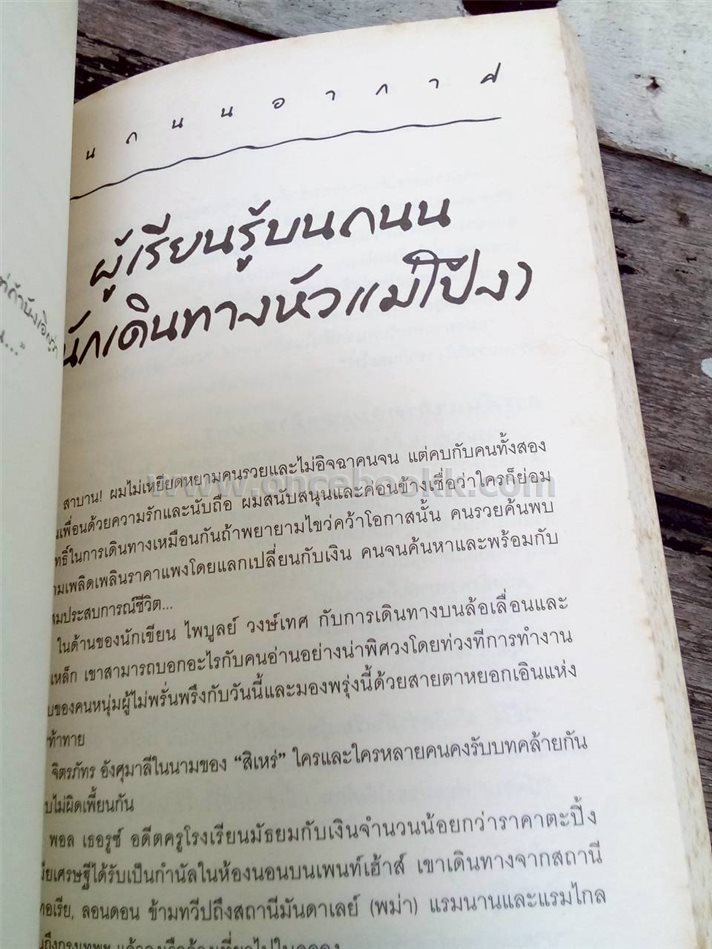 นถนนอากาศ
ผู้เรียนรู้บนถนน
นักเดินทางหัวแม่โป้ง
www.oncebookk.com
สาบาน! ผมไม่เหยียดหยามคนรวยและไม่อิจฉาคนจน แต่คบกับคนทั้งสอง
นเพื่อนด้วยความรักและนับถือ ผมสนับสนุนและค่อนข้างเชื่อว่าใครก็ย่อม
ทธิ์ในการเดินทางเหมือนกันถ้าพยายามไขว่คว้าโอกาสนั้น คนรวยค้นพบ
ามเพลิดเพลินราคาแพงโดยแลกเปลี่ยนกับเงิน คนจนค้นหาและพร้อมกับ
มประสบการณ์ชีวิต...
ในด้านของนักเขียน ไพบูลย์ วงษ์เทศ กับการเดินทางบนล้อเลื่อนและ
เหล็ก เขาสามารถบอกอะไรกับคนอ่านอย่างน่าพิศวงโดยท่วงทีการทำงาน
บของคนหนุ่มผู้ไม่พรั่นพรึงกับวันนี้และมองพรุ่งนี้ด้วยสายตาหยอกเอินแห่ง
ท้าทาย
จิตรภัทร อังศุมาลีในนามของ “สิเหร่” ใครและใครหลายคนคงรับบทคล้ายกัน
บไม่ผิดเพี้ยนกัน
พอล เธอรูซ์ อดีตครูโรงเรียนมัธยมกับเงินจำนวนน้อยกว่าราคาตะปิ้ง
มียเศรษฐีได้รับเป็นกำนัลในห้องนอนบนเพนท์เฮ้าส์ เขาเดินทางจากสถานี
ทอเรีย, ลอนดอน ข้ามทวีปถึงสถานีมันดาเลย์ (พม่า) แรมนานและแรมไกล